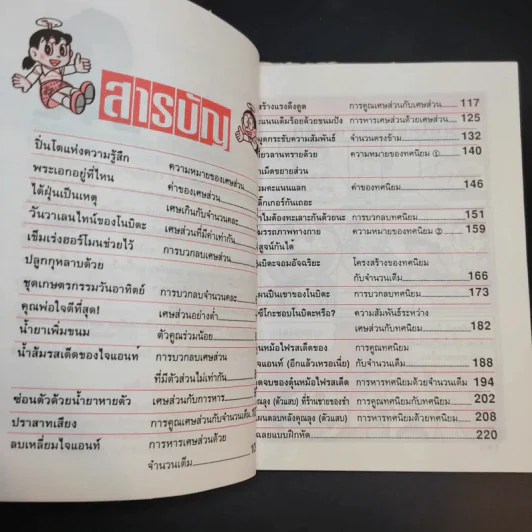 สารบัญ
ปิ่นโตแห่งความรู้สึก ความหมายของเศษส่วน
พระเอกอยู่ที่ไหน ค่าของเศษส่วน
ได้ฝุ่นเป็นเหตุ เศษเกินกับจำนวนคละ
วันวาเลนไทน์ของโนบิตะ เศษส่วนที่มีค่าเท่ากัน
เข็มเร่งฮอร์โมนช่วยไว้ การบวกลบเศษส่วน
ปลูกกุหลาบด้วย
ชุดเกษตรกรรมวันอาทิตย์ การบวกลบจำนวนคละ
คุณพ่อใจดีที่สุด! เศษส่วนอย่างต่ำ
น้ำยาเพิ่มขนม ตัวคูณร่วมน้อย
น้ำส้มรสเด็ดของไจแอนท์ การบวกลบเศษส่วน
ที่มีตัวส่วนไม่เท่ากัน
ซ่อนตัวด้วยน้ำยาหายตัว เศษส่วนกับการหาร
ปราสาทเสียง การคูณเศษส่วนกับจำนวนเต็ม
ลบเหลี่ยมไจแอนท์ การหารเศษส่วนด้วย
จำนวนเต็ม
สร้างแรงดึงดูด การคูณเศษส่วนกับเศษส่วน 117
คะแนนเต็มร้อยด้วยขนมปัง การหารเศษส่วนด้วยเศษส่วน 125
กระชับความสัมพันธ์ จำนวนตรงข้าม 132
ความหมายของทศนิยม ① 140
เม็ดขยายส่วน
คะแนนแลก ค่าของทศนิยม 146
สติ๊กเกอร์กันเถอะ
ทำไมต้องทะเลาะกันด้วยนะ การบวกลบทศนิยม 151
ความหมายของทศนิยม ② 159
พิสูจน์กันได้
โนบิตะจอมอัจฉริยะ โครงสร้างของทศนิยม
กับจำนวนเต็ม 166
แผนปีนเขาของโนบิตะ การบวกลบทศนิยม 173
ชอบโนบิตะหรือ? ความสัมพันธ์ระหว่าง
เศษส่วนกับทศนิยม 182
ตุ๋นหม้อไฟรสเด็ดของ การคูณทศนิยม
ไจแอนท์ (อีกแล้วเหรอเนี่ย) กับจำนวนเต็ม 188
จุดจบของตุ๋นหม้อไฟรสเด็ด การหารทศนิยมด้วยจำนวนเต็ม 194
คุณลุง (ตัวแสบ) ที่ร้านขายของชำ การคูณทศนิยมกับทศนิยม 202
คุณลุง (ตัวแสบ) การหารทศนิยมด้วยทศนิยม 208
เฉลยแบบฝึกหัด 220